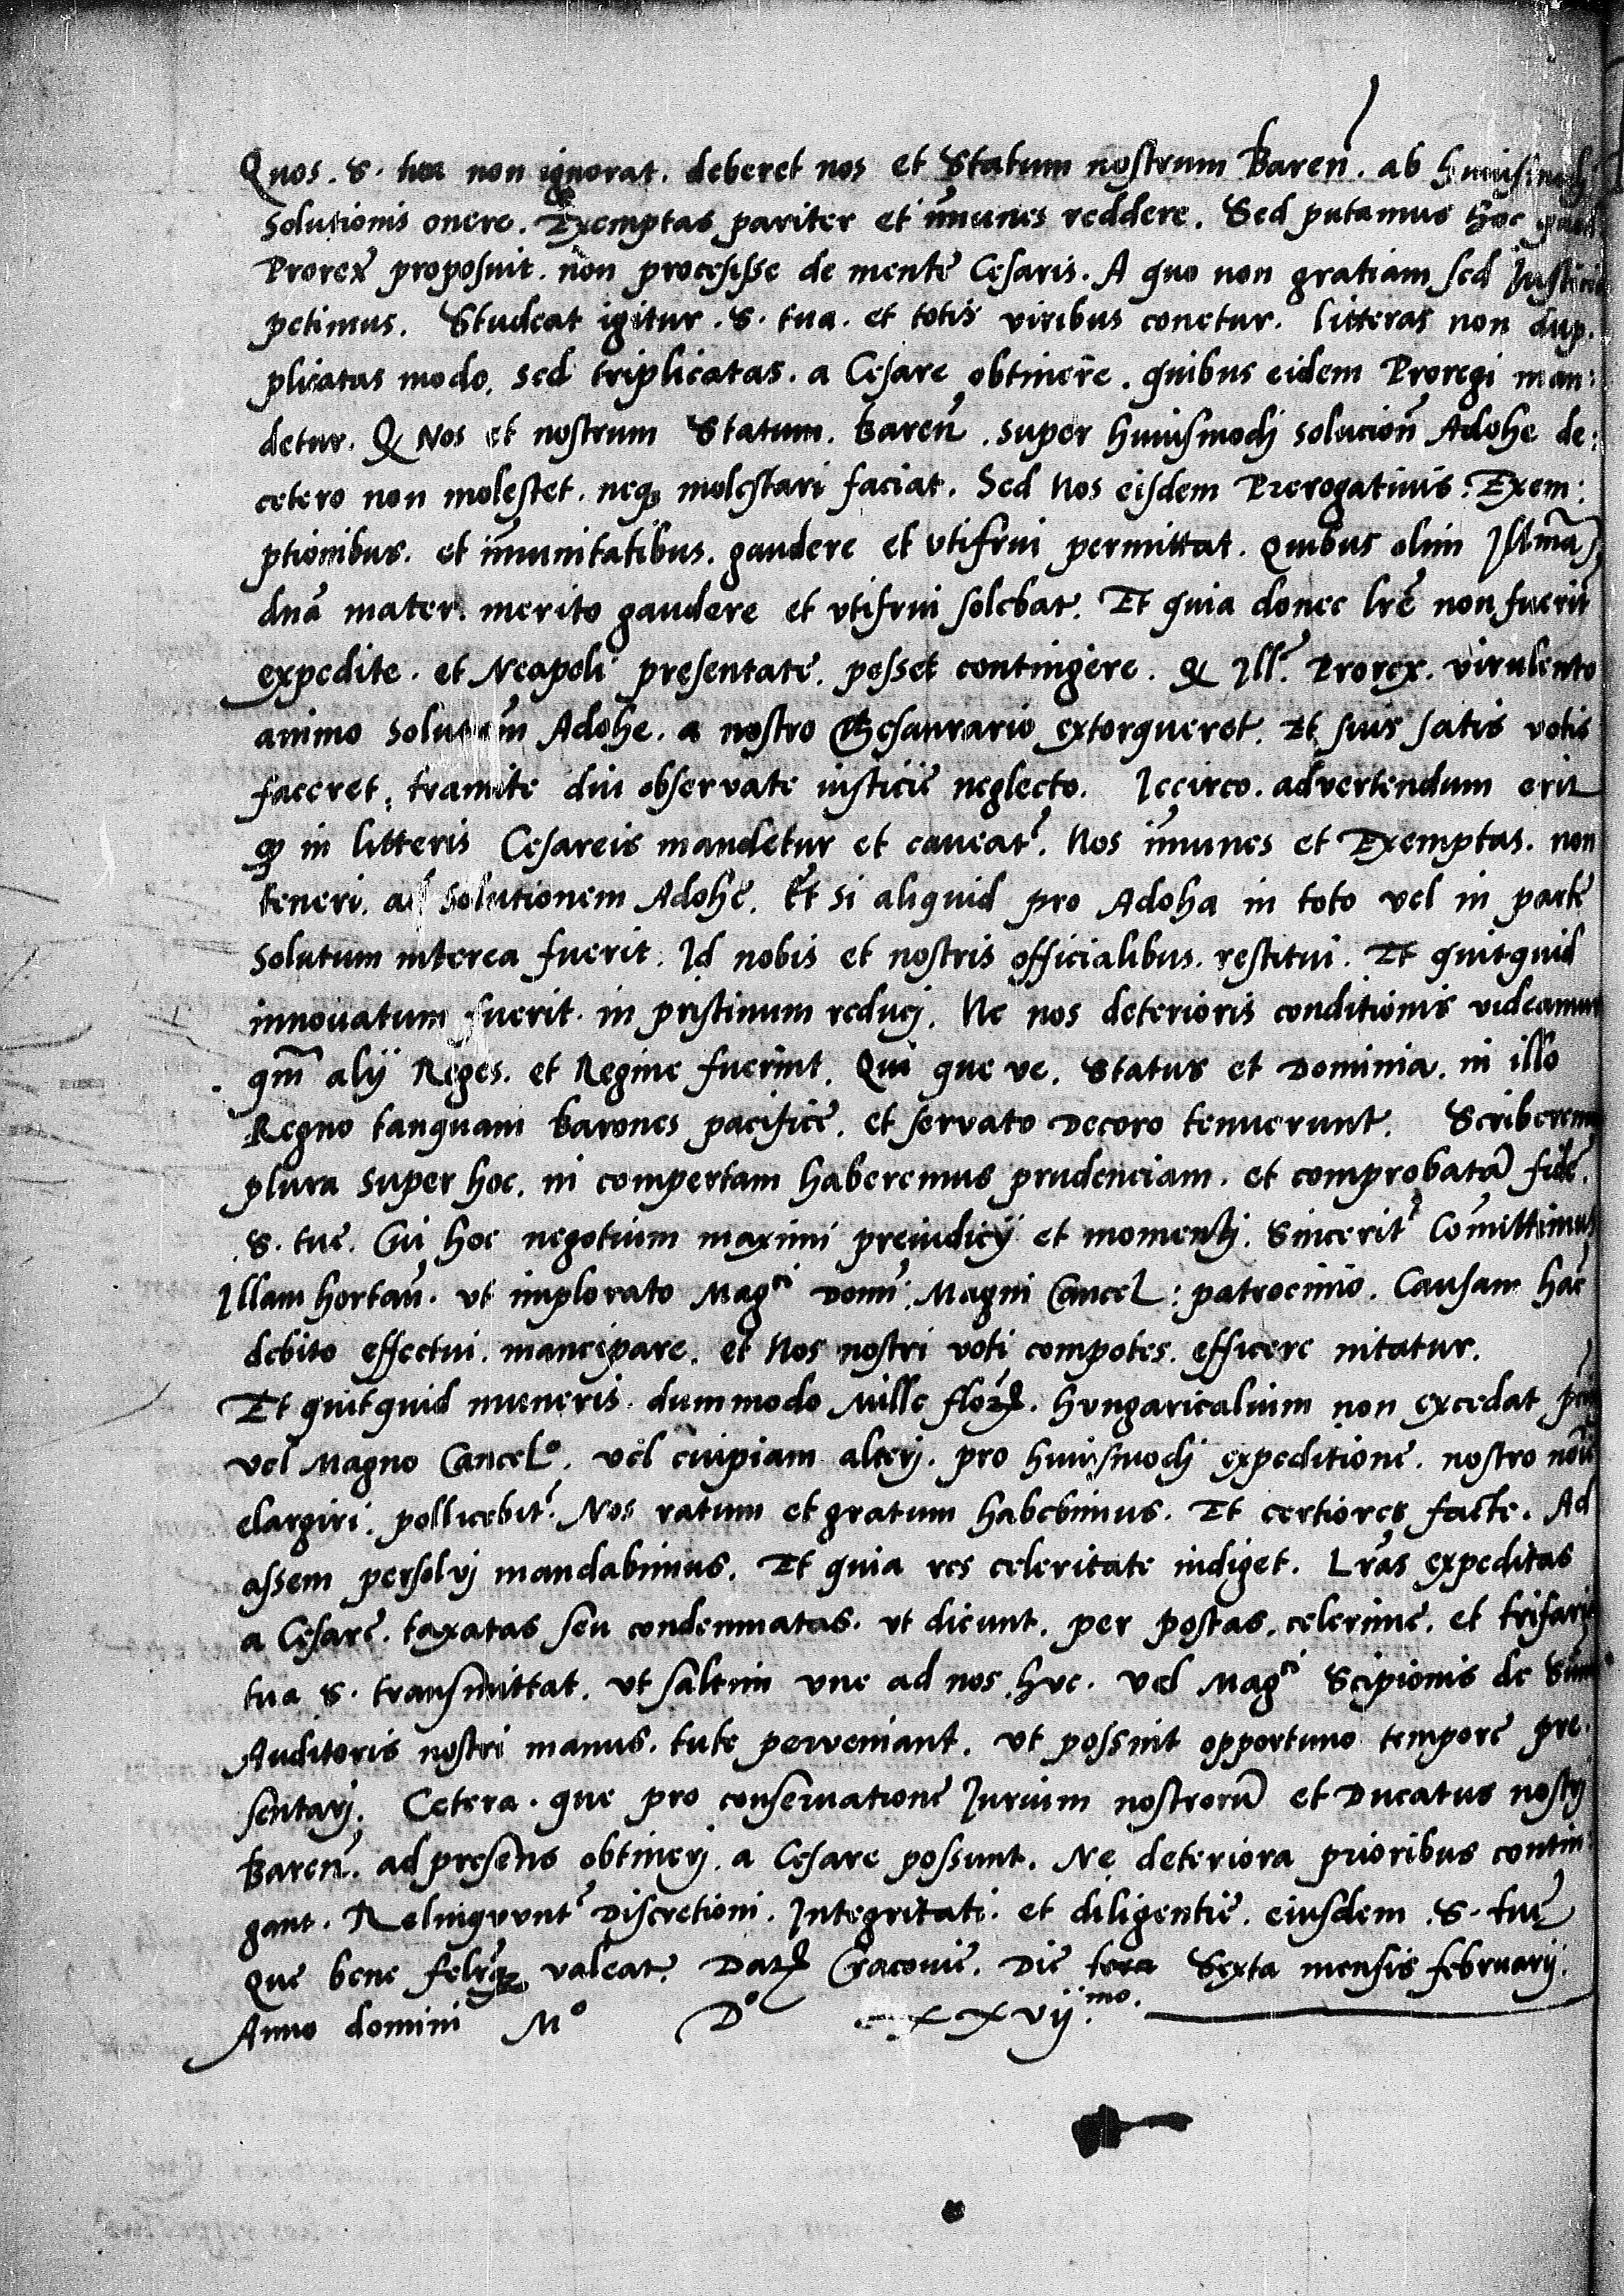 Quos. S. tua non ignorat. deberet nos et Statum nostrum Bareñ. ab huiusmodj
solutionis onere. Exemptas pariter et im̃unes reddere. Sed putamus hoc quod
Prorex proposuit. non processisse de mente Cesaris. A quo non gratiam sed Justiciã
petimus. Studeat igitur. S. tua. et totis viribus conetur. litteras non dup-
plicatas modo. sed triplicatas. a Cesare obtinere. quibus eidem Proregi man:
detur. Q Nos et nostrum Statum. Bareñ. super huiusmodj solucioñ Adohe de:
cetero non molestet. neqʒ molestari faciat. Sed Nos eisdem Prerogativis. Exem:
ptionibus. et im̃unitatibus. gaudere et vtifrui permittat. Quibus olim Jllma
dña mater. merito gaudere et vtifrui solebat. Et quia donec lrẽ non fuerint
expedite. et Neapoli presentate. posset contingere. Q Jll. Prorex. virulento
animo solutiõm Adohe. a nostro Thesaurario extorqueret. Et suis satis votis
faceret, tramite diu observate iusticie neglecto. Jccirco. advertendum erit
ꝙ in litteris Cesareis mandetur et caveat͛. Nos im̃unes et Exemptas. non
teneri. ad solutionem Adohe. Et si aliquid pro Adoha in toto vel in parte
solutum interea fuerit. Jd nobis et nostris officialibus. restitui. Et quitquid
innouatum fuerit. in pristinum reducj. Ne nos deterioris conditionis videamur
qm̃ alij Reges. et Regine fuerint. Qui que ve. Status et Dominia. in illo
Regno tanquam Barones pacifice. et servato decoro tenuerunt. Scriberemus
plura super hoc. ni compertam haberemus prudenciam. et comprobatã fidẽ.
S. tue. Cui hoc negotium maximi preiudicij et momentj. Sincerit͛ Com̃ittimus
Jllam hortañ. vt implorato Magci Domi. Magni Cancel: patrocinio. Causam hãc
debito effectui. mancipare. et Nos nostri voti compotes. efficere nitatur.
Et quitquid muneris. dummodo Mille florꝝ. Hungaricalium non excedat
vel Magno Cancelo. vel cuipiam alterj. pro huiusmodj expeditione. nostro noĩe
elargiri. pollicebit͛. Nos ratum et gratum habebimus. Et certiores facte. Ad
assem persolvj mandabimus. Et quia res celeritate indiget. Lrãs expeditas
a Cesare. taxatas seu condemnatas. vt dicunt. per postas. celerime. et trifarie
tua S. transmittat. vt saltim vne ad nos huc. vel Magci Scipionis de
Auditoris nostri manus. tute perveniant. vt possint opportuno tempore pre-
sentarj. Cetera. que pro conservatione Jurium nostrorũ et Ducatus nostrj
Bareñ. ad presens obtinerj. a Cesare possunt. Ne deteriora prioribus contin-
gant. Relinquunt͛ Discretioni. Jntegritati. et diligentie. eiusdem S. tue
Que bene felrqʒ valeat. Datꝝ Cracovie. Die Sexta mensis februarij.
Anno domini Mo Do xxvijmo.